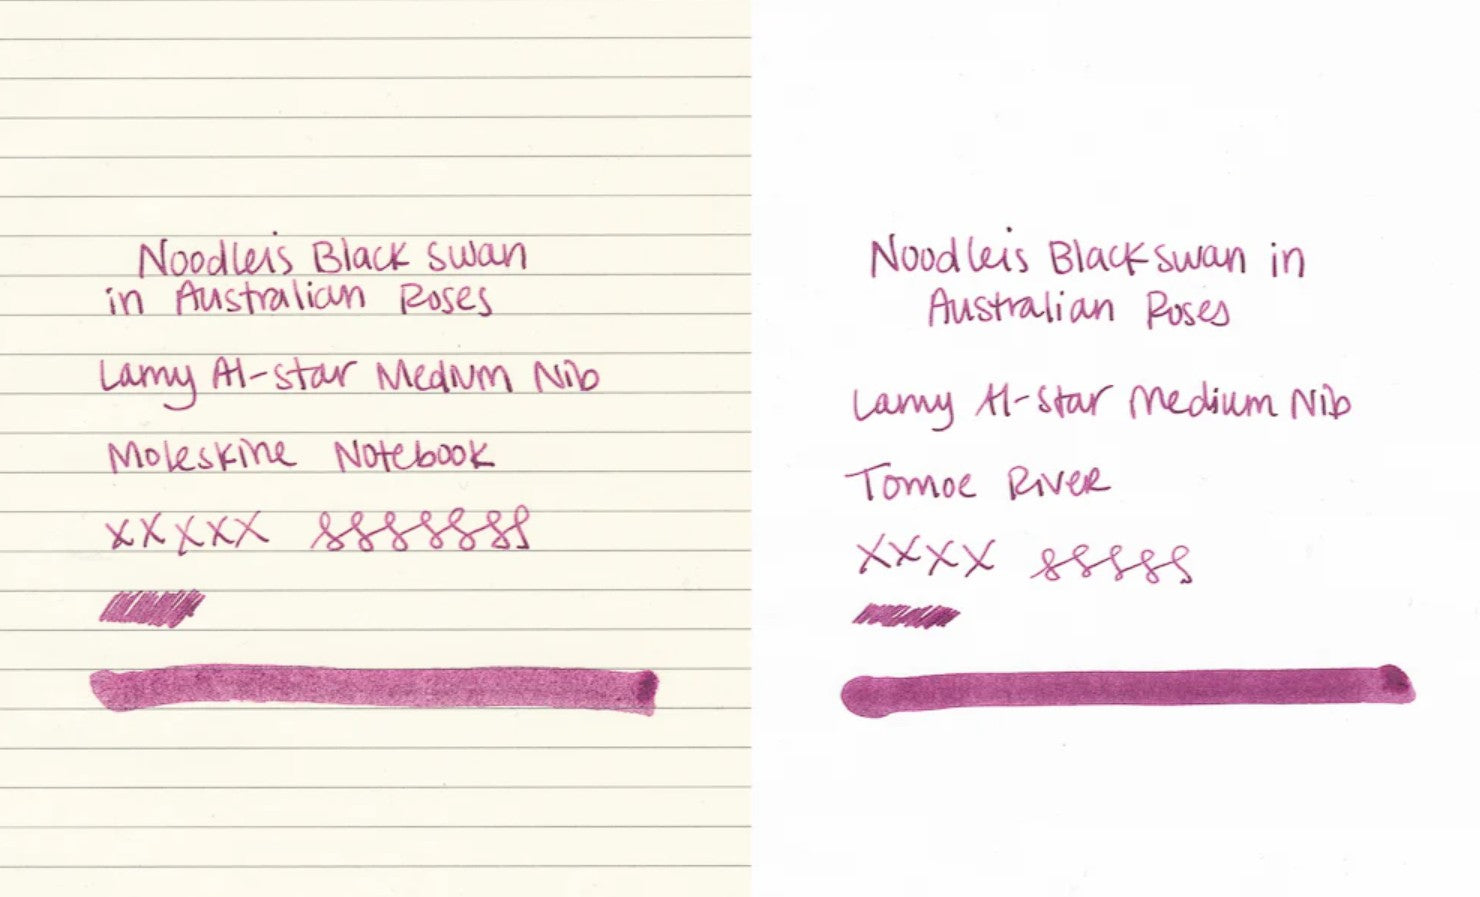 Noodler's Black Swan
in Australian Roses
Lamy Al-Star Medium Nib
Moleskine Notebook
xxxxx sssssss
Noodler's Black Swan in
Australian Roses
Lamy Al-Star Medium Nib
Tomoe River
xxxx sssss